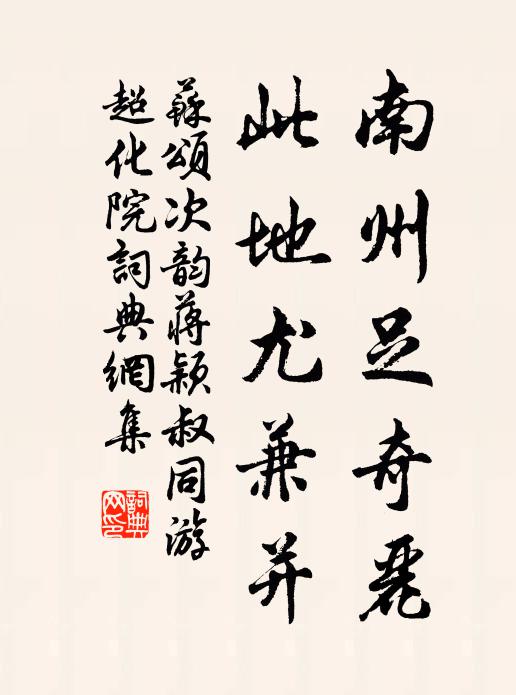 南州足奇麗
此地尤兼并
蘇頌次韵蔣穎叔同游
超化院詞典網集
詞典
网印